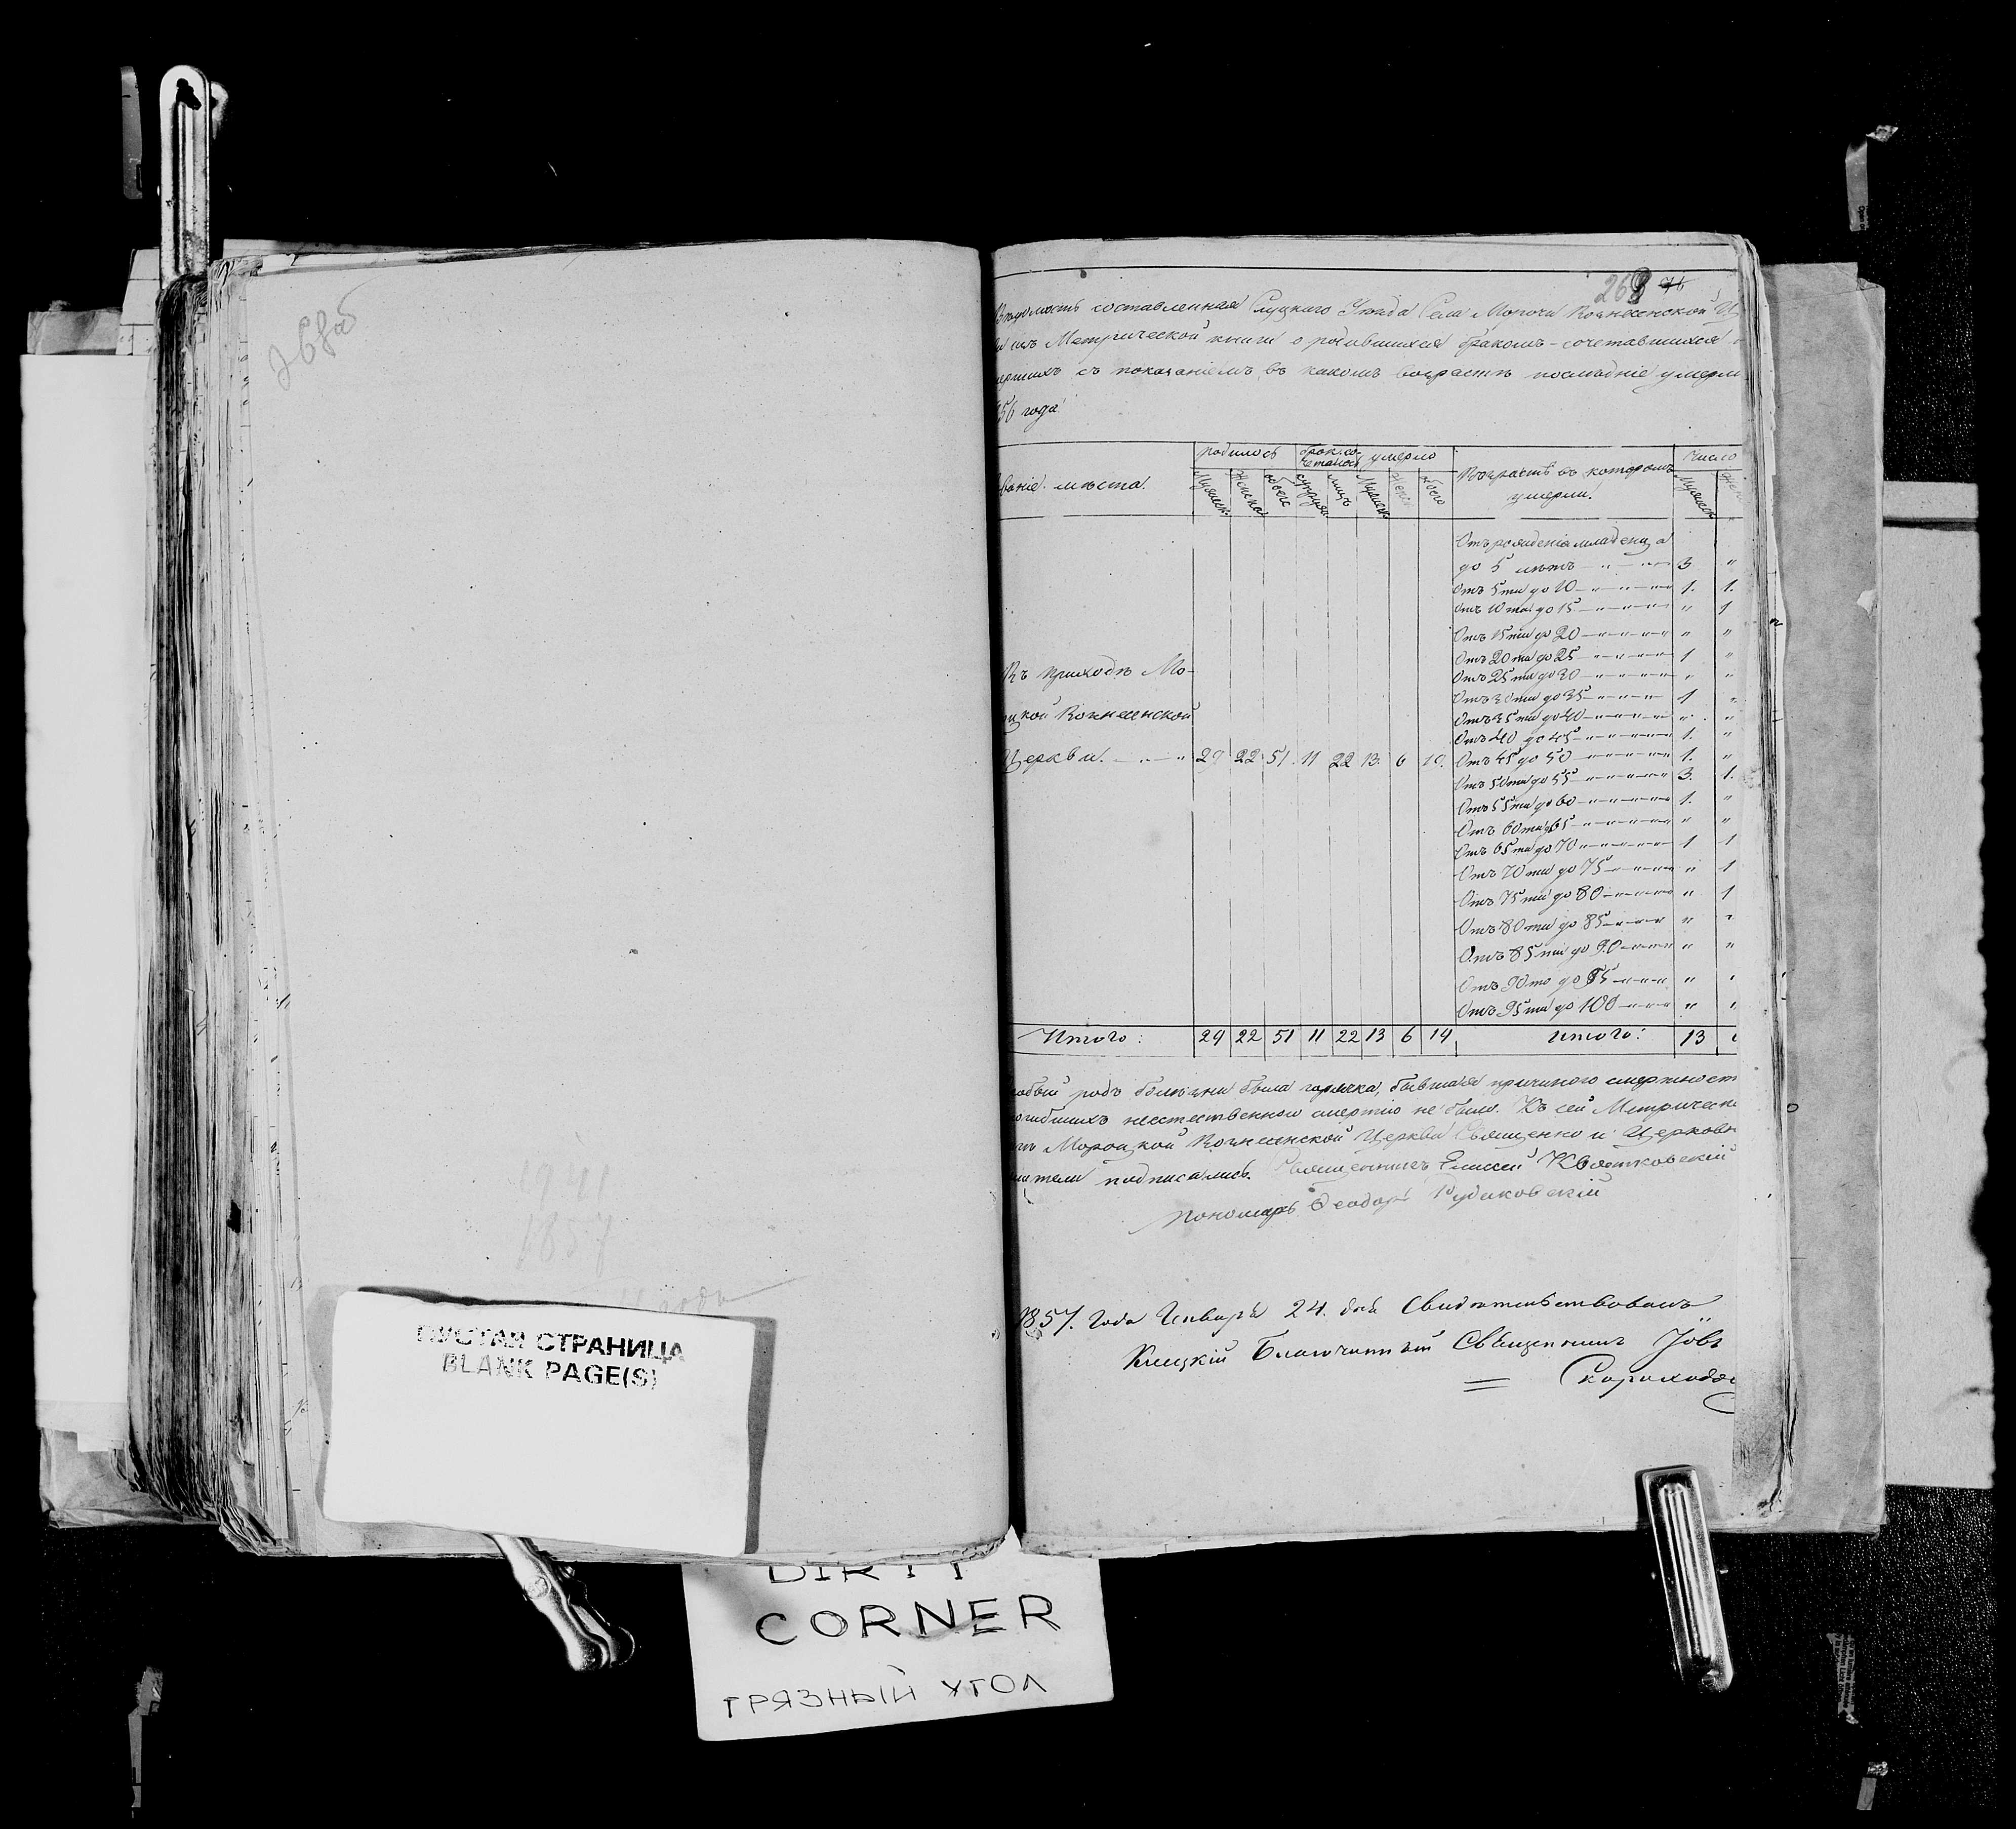 268а
1857
года
ПУСТАЯ СТРАНИЦА
BLANK PAGE(S)
DIRTY
CORNER
ГРЯЗНЫЙ УГОЛ
268 76
Вѣдомость составленная Слуцкаго Уѣзда Села Морочи Вознесенской Ц
изъ Метрической книги о родившихся бракомъ-сочетавшихся
мершихъ съ показаніемъ, въ какомъ возрастѣ послѣдніе умерли
856 года
званіе мѣста. Родилось брак. со-четалось умерло Возрастъ въ которомъ умерли. Число
Мужеск. Женска обоего супруж. лицъ Мужеск. Женск обоего Мужеск. Же
Отъ рожденія младенца
до 5 лѣтъ 3 "
Отъ 5ти до 10 1. 1.
Отъ 10ти до 15 " 1
Отъ 15ти до 20 " "
Отъ 20ти до 25 1 "
Отъ 25ти до 30 " "
Отъ 30ти до 35 1 "
Отъ 35ти до 40 " "
Отъ 40 до 45 1. "
Въ приходѣ Мо-
цкой Вознесенской
Церкви. 29 22 51 11 22 13. 6 19. Отъ 45 до 50 1. "
Отъ 50ти до 55 3. 1.
Отъ 55ти до 60 1. "
Отъ 60ти до 65 " "
Отъ 65ти до 70 1 1
Отъ 70ти до 75 " 1
Отъ 75ти до 80 " 1
Отъ 80ти до 85 " "
Отъ 85ти до 90 " "
Отъ 90то до 95 " "
Отъ 95ти до 100 " "
Итого: 29 22 51 11 22 13 6 19 Итого: 13
собый родъ болѣзни была горячка, бывшая причиною смертност
огибшихъ неестественною смертію не было. Къ сей Метрическ
Мороцкой Вознесенской Церкви Священно и Церковн
жители подписались. Священникъ Елисей Квятковскій
Пономарь Ѳеодоръ
1857. Года Января 24. дня Свидѣтельствовалъ
Клецкій Благочинный Священникъ Іовъ
Скороходо